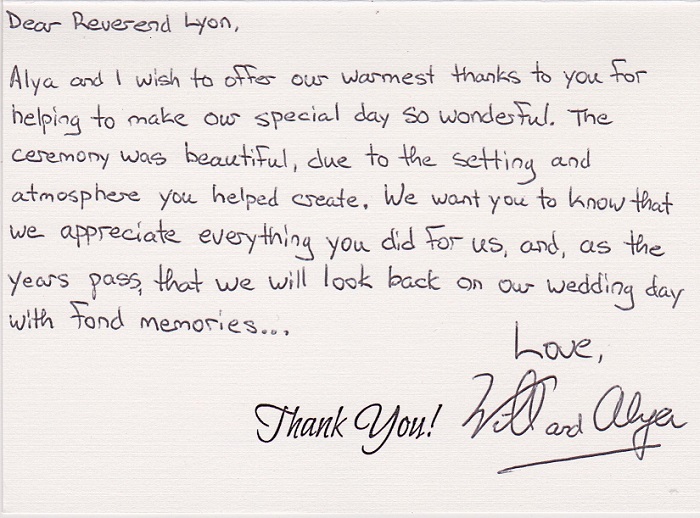 Dear Reverend Lyon,
Alya and I wish to offer our warmest thanks to you for
helping to make our special day so wonderful. The
ceremony was beautiful, due to the setting and
atmosphere you helped create. We want you to know that
we appreciate everything you did for us, and, as the
years pass, that we will look back on our wedding day
with fond memories...
Love,
Thank You!
Will and Alya